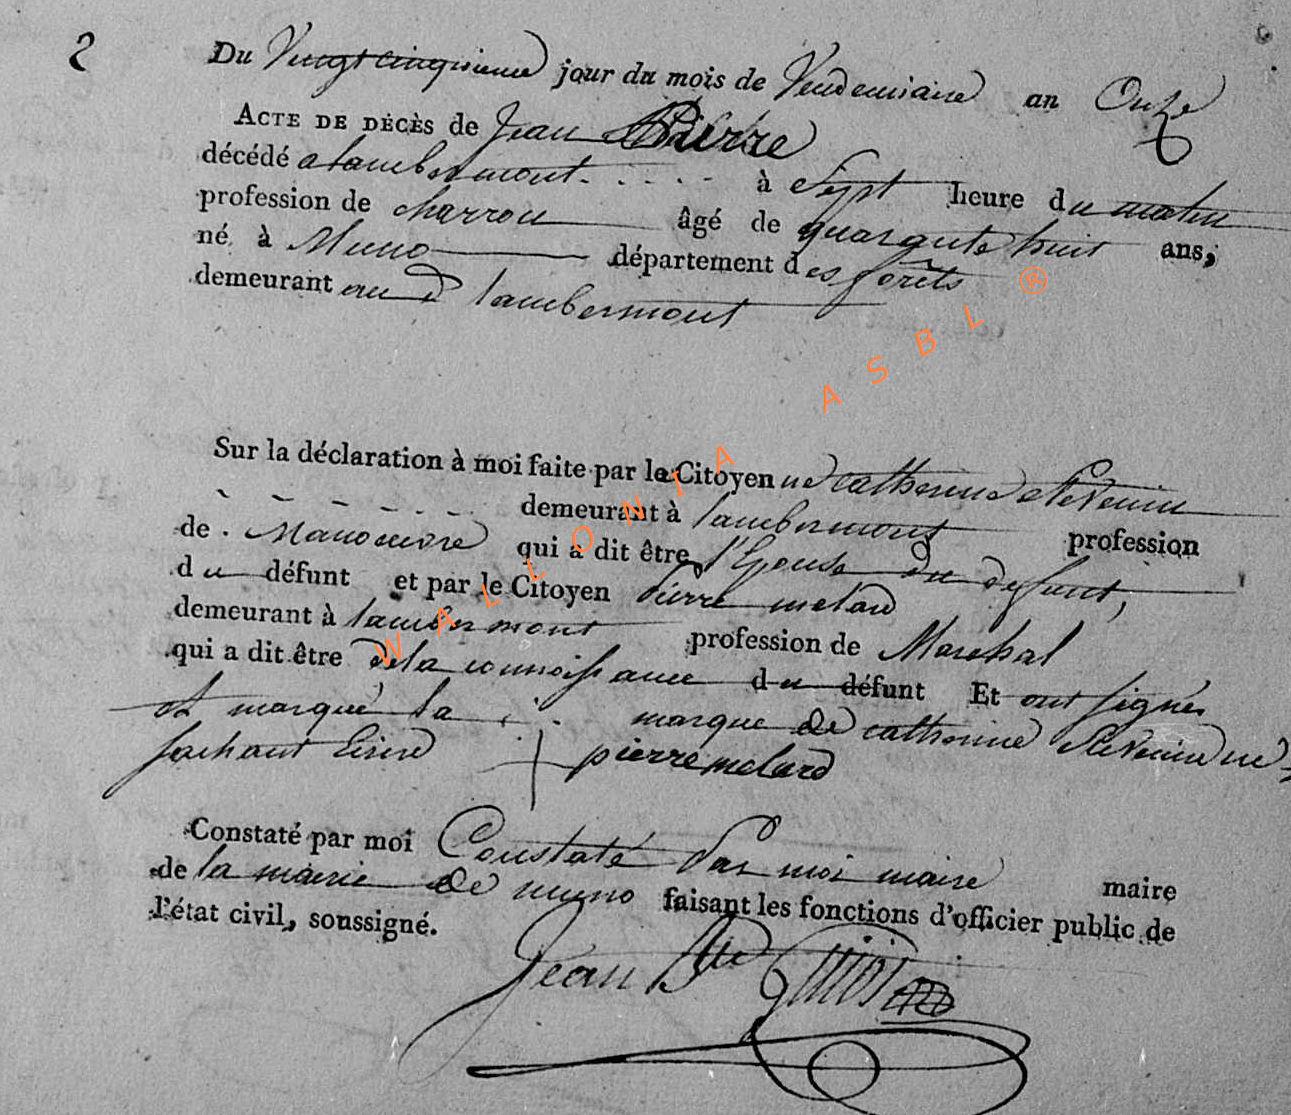 2
Du Vingt cinquieme jour du mois de Vendemiaire an Onze
ACTE DE DÉCÈS de Jean Pierre
décédé a lambermont. . . . . . à Sept heure du matin
profession de charron âgé de quarante huit ans,
né à Muno département des forêts
demeurant au d lambermont
Sur la déclaration à moi faite par la Citoyenne catherine Stevenin
demeurant à lambermont profession
de Manoeuvre qui a dit être l'Epouse du defunt,
du défunt et par le Citoyen Pierre melard
demeurant à lambermont profession de Marchal
qui a dit être de la connoissance du défunt Et ont signés
et marqué la marque de catherine Stevenin ne
sachant Ecrire + pierre melard
Constaté par moi Constaté Par moi maire maire
de la mairie de muno faisant les fonctions d'officier public de
l'état civil, soussigné.
Jean Bte
WALLONIA ASBL ®